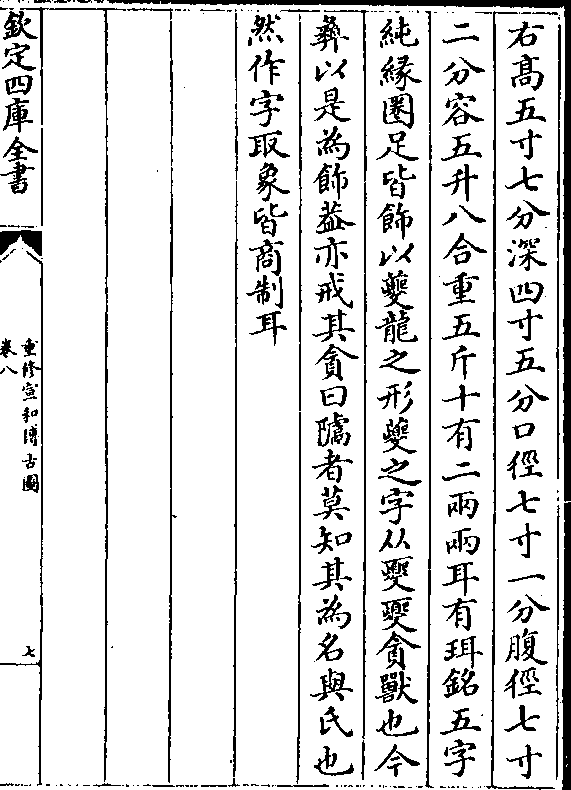 右髙五寸七分深四寸五分口徑七寸一分腹徑七寸
二分容五升八合重五斤十有二兩兩耳有珥銘五字
純緣圏足皆飾以夔龍之形夔之字从夒夒貪獸也今
彝以是為飾葢亦戒其貪曰隲者莫知其為名與氏也
然作字取象皆商制耳
欽定四庫全書
重修宣和博古圖
卷八
七